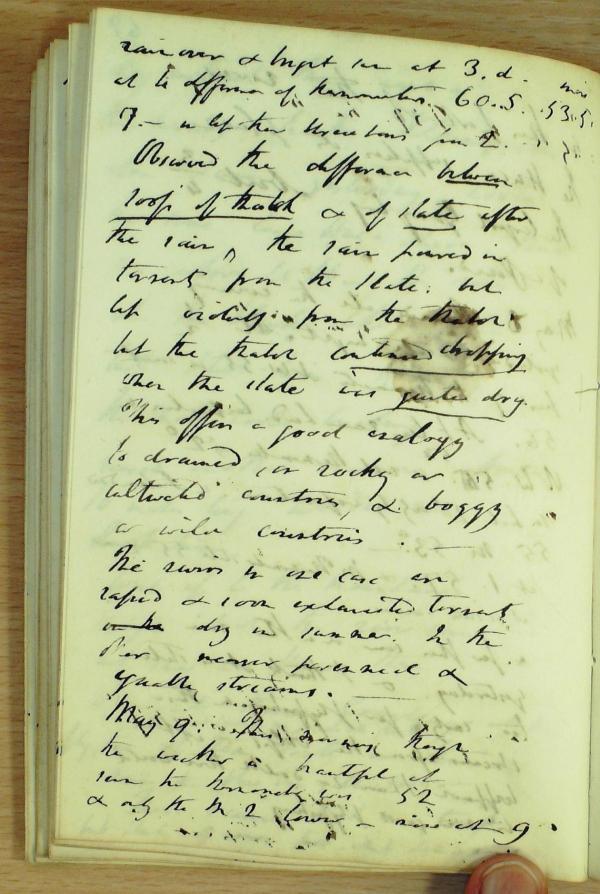 rain over & bright sun at 3. d.
at the difference of thermometers. 60..5. .53.5.
7. —
Observed the difference between
roofs of thatch & of slate after
the rain, the rain poured in
torrents from the slate: but
less violently from the thatch
but the thatch continued dropping
when the slate was quite dry.
This offers a good analogy
to drained or rocky or
cultivated countries, & boggy
or wild countries. —
The rivers in one case are
rapid & soon exhausted torrents
dry in summer. In the
other never perennial &
equable streams. —
May 9. This morning though
the weather is beautiful at
the thermometer was 52
& only the M 2 lower - now at 9